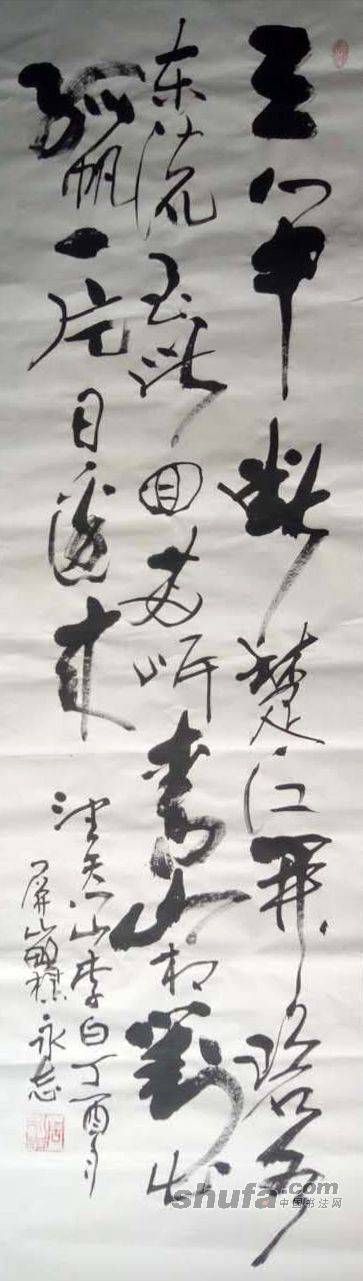 天门中断楚江开碧水
东流至此回两岸青山相對出
孤帆一片日邊来
望天门山李白丁酉
屏山 永志
shufa.com
中国书法网